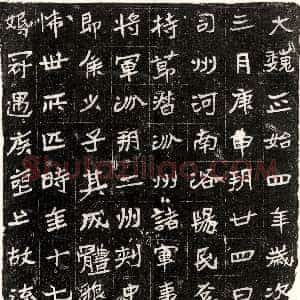 大魏正始四年歲次
三月庚申朔廿四日
司州河南洛陽民
持節督汾州諸軍事
將軍汾朔州刺史
即侯之子其體
世匹時年十七
冠遇疾上故流
Shufaziliao.com